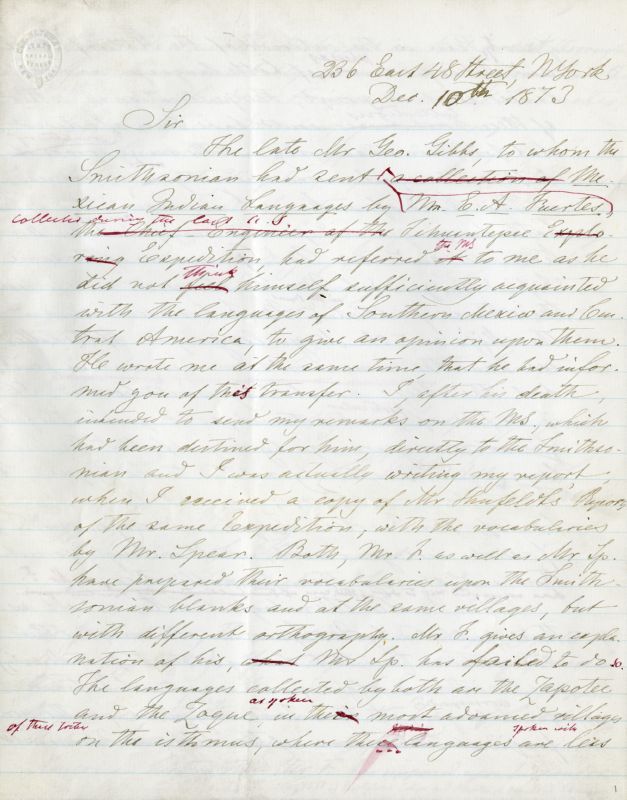 236 East 48 Street, N York
Dec. 10th 1873
Sir
The late Mr. Geo. Gibbs, to whom the
Smithsonian had sent a collection of Me
xican Indian Languages by Mr. E. A. Fuertes,
collected during the last U. S
the Chief Engineer of the Tehuantepec Explo
ring Expedition, had referred it the MS to me as he
did not feel think himself sufficiently acquainted
with the languages of Southern Mexico and Cen-
tral America, to give an opinion upon them.
He wrote me at the same time that he had infor-
med you of this transfer. I after his death,
intended to send my remarks on the MS., which
had been destined for him, directly to the Smithso-
nian and I was actually writing my report,
when I received a copy of Mr Shufeldt's Report
of the same Expedition, with the vocabularies
by Mr. Spear. Both, Mr. F. as well as Mr Sp.
have prepared their vocabularies upon the Smith-
sonian blanks and at the same villages, but
with different orthography. Mr F. gives an expla-
nation of his, Mr Sp. has failed to do so.
The languages collected by both are the Zapotec
and the Zoque, as spoken in their most advanced villages
of these
spoken with
on the isthmus, where these languages are less
1